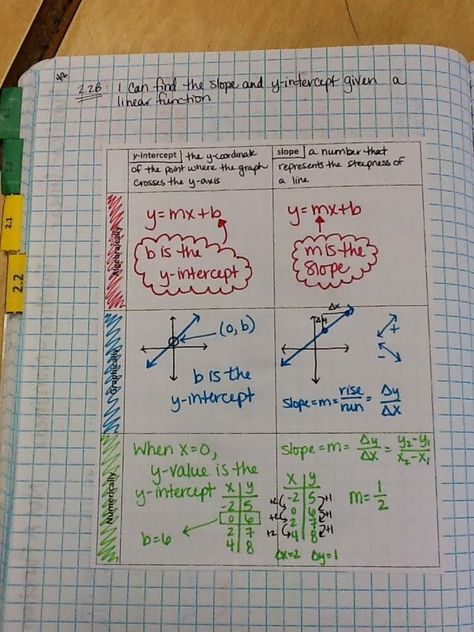 2.2B I can find the slope and y-intercept given a
linear function
y-intercept the y-coordinate
of the point where the graph
crosses the y-axis
slope a number that
represents the steepness of
a line
Algebraically
y=mx+b
b is the
y-intercept
y=mx+b
m is the
slope
Graphically
(0, b)
b is the
y-intercept
Δx
Δy
+
-
slope=m= rise/run = Δy/Δx
Numerically
When x=0,
y-value is the
y-intercept
x y
-2 5
0 6
2 7
4 8
b=6
slope=m= Δy/Δx = y₂-y₁/x₂-x₁
x y
-2 5
0 6
2 7
4 8
+2 +1
+2 +1
+2 +1
m=1/2
Δx=2 Δy=1
2.1
2.2